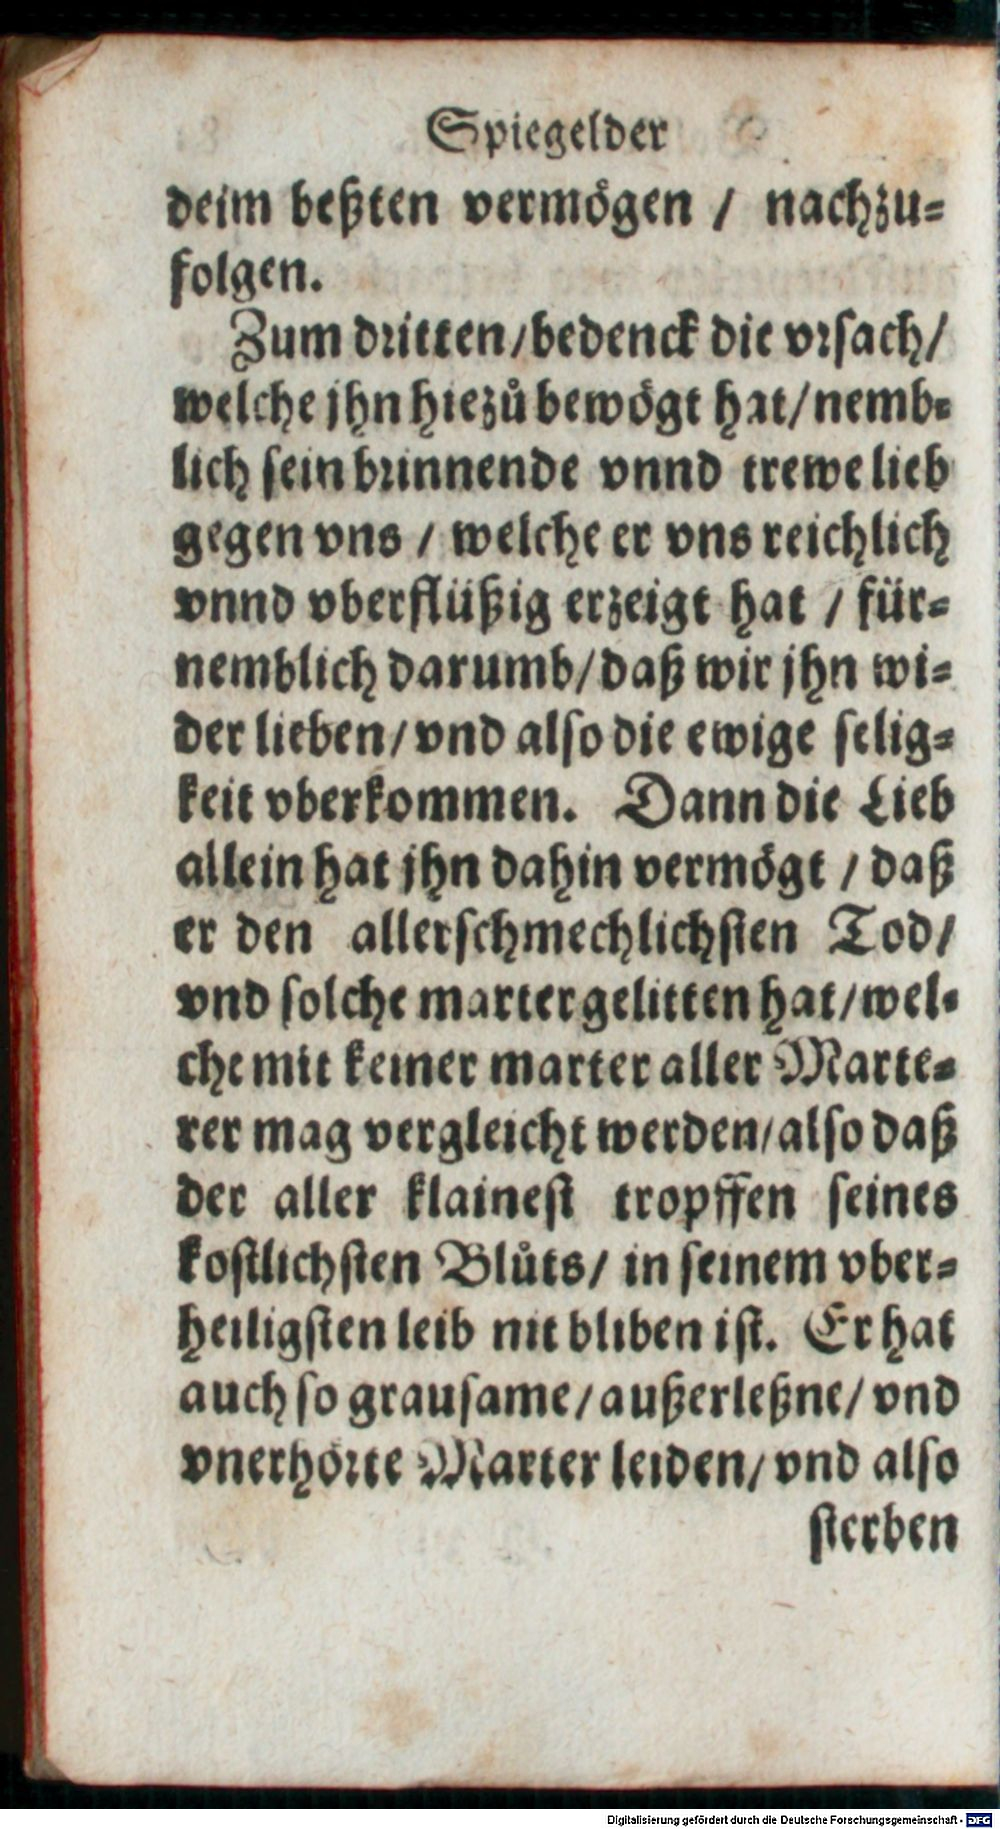 Spiegel der
deim beßten vermögen / nachzu-
folgen.
Zum dritten/bedenck die vrsach/
welche jhn hiezů bewögt hat/nemb-
lich sein brinnende vnnd trewe lieb
gegen vns / welche er vns reichlich
vnnd vberflüßig erzeigt hat / für-
nemblich darumb/daß wir jhn wi-
der lieben/vnd also die ewige selig-
keit vberkommen. Dann die Lieb
allein hat jhn dahin vermögt / daß
er den allerschmechlichsten Tod/
vnd solche marter gelitten hat/wel-
che mit keiner marter aller Marte-
rer mag vergleicht werden/also daß
der aller klainest tropffen seines
kostlichsten Blůts/ in seinem vber-
heiligsten leib nit bliben ist. Er hat
auch so grausame/außerleßne/ vnd
vnerhörte Marter leiden/ vnd also
sterben
Digitalisierung gefördert durch die Deutsche Forschungsgemeinschaft - DFG